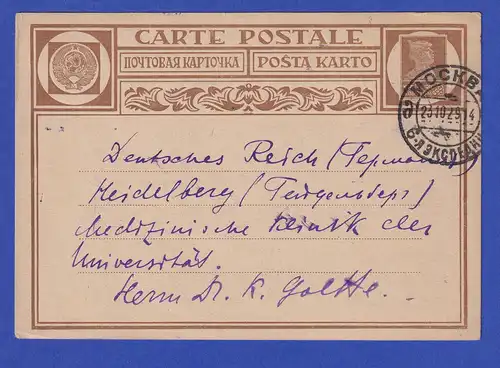 CARTE POSTALE
ПОЧТОВАЯ КАРТОЧКА
POŜTA KARTO
МОСКВА
23 10 29 14
6-я ЭКСПЕДИЦ
Deutsches Reich (Германия)
Heidelberg (Гейдельберг)
Medizinische Klinik der
Universität.
Herrn Dr. K. Goltte.